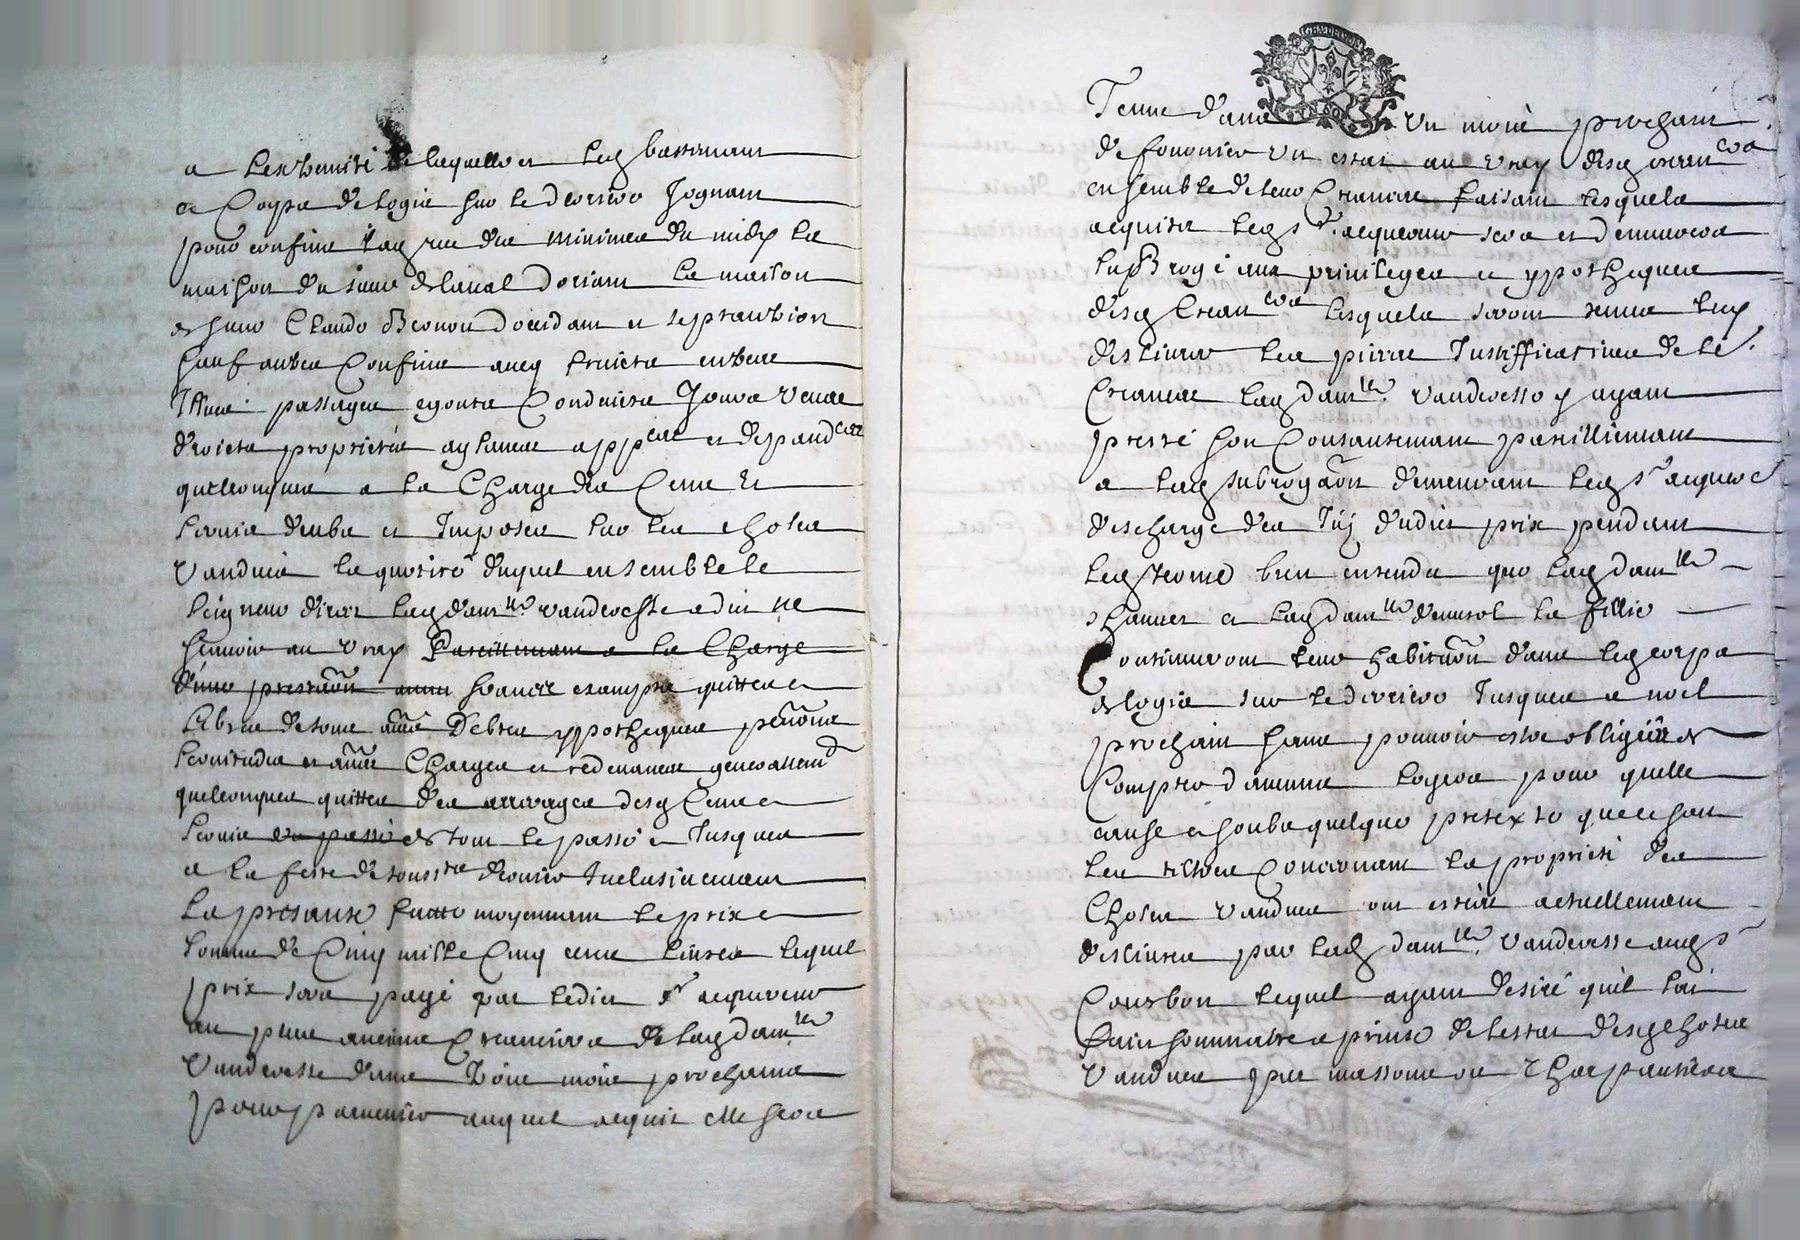 a lextremité de laquelle est ledg bastimant
et Corps de logis sur le derriero Jognant
pour confins lad rue des minimes du midy la
maison du sieur delaual dorians La maison
de sieur Claude Beonon doccidant et septantrion
sauf autres Confins aueq fruicts entrees
Issues passages egouts Conduicts Jours Veues
droicts proprietés aysances appces et depandces
quelconques a la Charge des Cens Et
seruis deubs et Imposés sur les choses
Vandues la quotité duquel ensemble le
seigneur direct ladg damlle vanderesse a dit ne
scauoir au vray Pareillemant a la Charge
d'une prestaõn franches exampts quittes et
libres de tous Debtes ypotheques pẽnons
seruitudes et Charges et redeuances generallemt
quelconques quittes des arrerages desg Cens et
seruis du passé de tout le passé et Jusques
a la feste de toussts dernier Inclusiuemant
La presante faitte moyennant le prix et
somme de Cinq mille Cinq cens liures lequel
prix sera payé par ledict sr acquereur
au plus anciens Creanciers de ladg damlle
Vanderesse dans trois mois prochains
pour paruenir auquel acquit elle sera
Tenue dans Un mois prochain
de fournir un estat au vray desg crean cers
ensemble de leur Creances faisant lesquels
acquits ledg sr acquereur sera et demeurera
subrogé aux privileges et ypotheques
desg Crean cers lesquels seront tenus luy
deslivrer les pieces Justifficatives de le.
Creances ladg damlle vanderesse y ayant
presté son Consantemant pareillemant
a ladg subrogaõn demeurant ledg sr acquer
descharge des Inj dudict prix pendant
ledg terme bien entendu que ladg damlle
et ladg damlle la fillie
Continueront leur habitaõn dans ledg corps
de logis sur le derriero Jusques a noel
prochain sans pouuoir estre obligées de
Compter daucuns loyers pour quelle
cause et soubs quelque pretexte que ce soit
Les tiltres Concernant la proprieté des
Choses vandues ont esté actuellemant
deslivrés par ladg damlle Vanderesse audg sr
Courbon lequel ayant desiré quil soit
fait sommaire aprinse de lestat desg choses
Vandues par massons ou Charpantiers